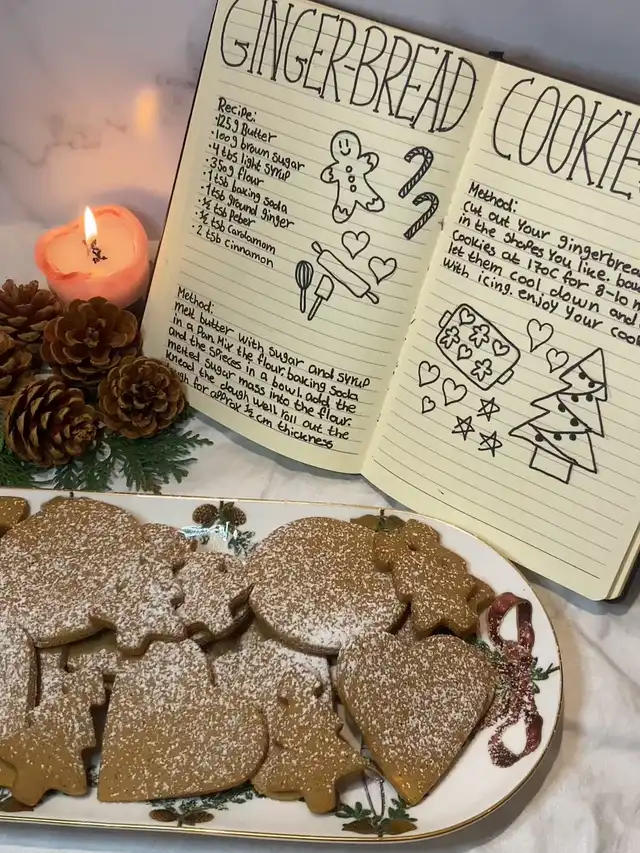 GINGER-BREAD
Recipe:
·125g Butter
·100g brown sugar
·4 tbs light syrup
·350g flour
·1 tsb baking soda
·1 tsb ground ginger
·½ tsb Peber
·½ tsb Cardamom
·2 tsb Cinnamon
Method:
melt butter with sugar and syrup
in a pan. Mix the flour, baking soda
and the spieces in a bowl. add the
melted sugar mass into the flour.
knead the dough well. roll out the
dough for approx ½ cm thickness
COOKIE
Method:
cut out your gingerbrea
in the shapes you like.
cookies at 170c for 8-10
let them cool down and
with icing. enjoy your cook